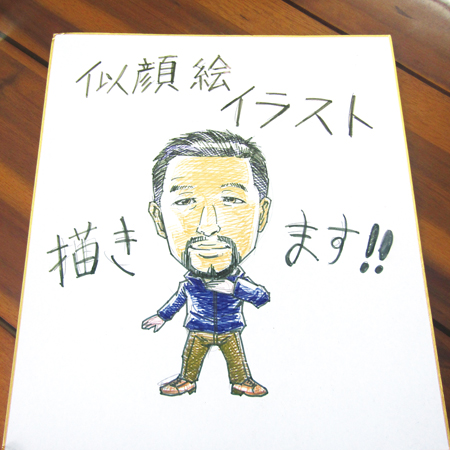 似顔絵
イラスト
描き
ます!!